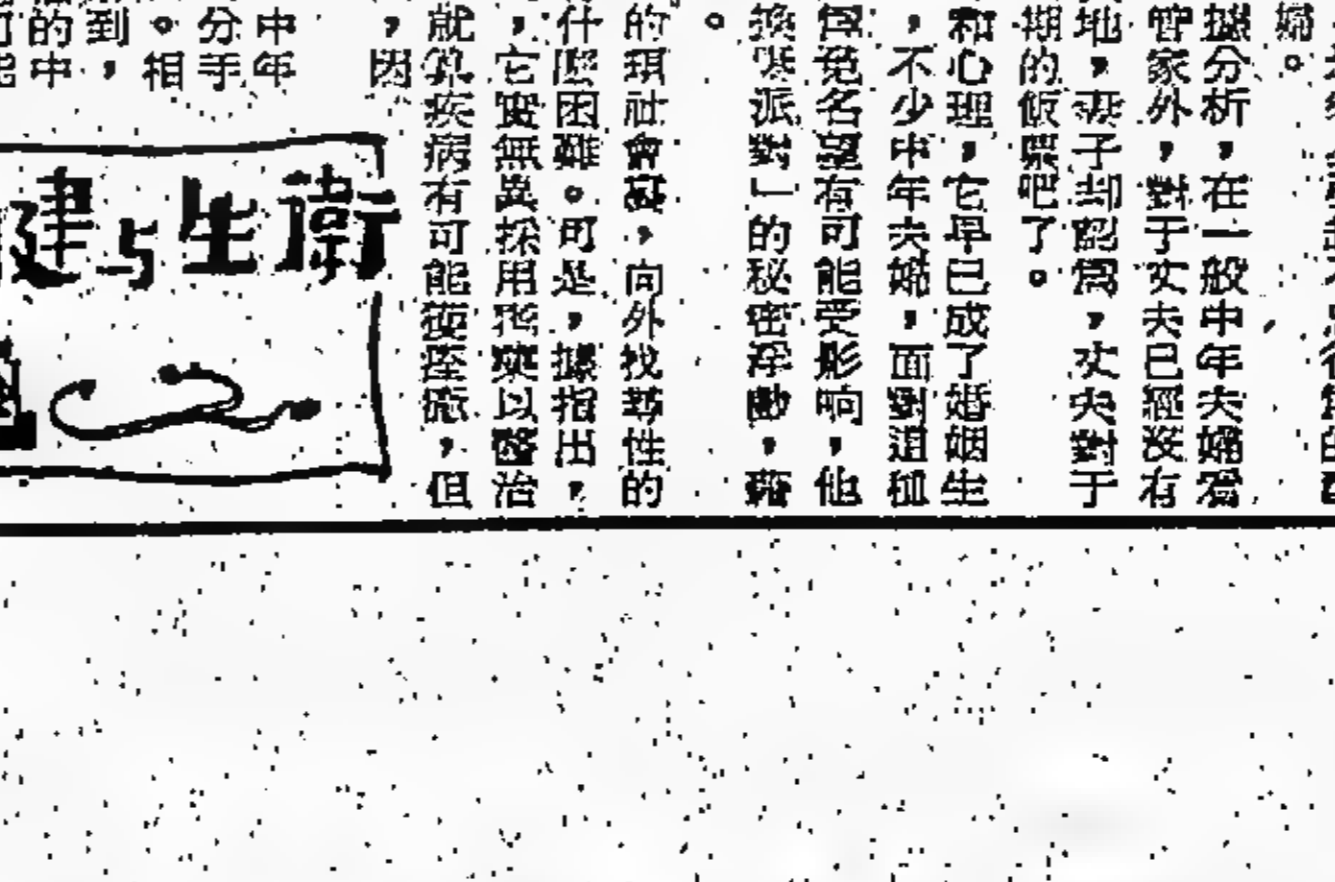 婦。
據分析，在一般中年夫婦爲
管家外，對于丈夫已經沒有
地，妻子却認爲，丈夫對于
期的飯票吧了。
和心理，它早已成了婚姻生
，不少中年夫婦，面對這種
名望有可能受影响，他
換妻派對」的秘密活動，藉
。
的現社會裏，向外找尋性的
什麼困難。可是，據指出，
，它實無異採用 以醫治
就算疾病有可能 ，但
，因
中年
分手
。相
到，
的中
衛生与健